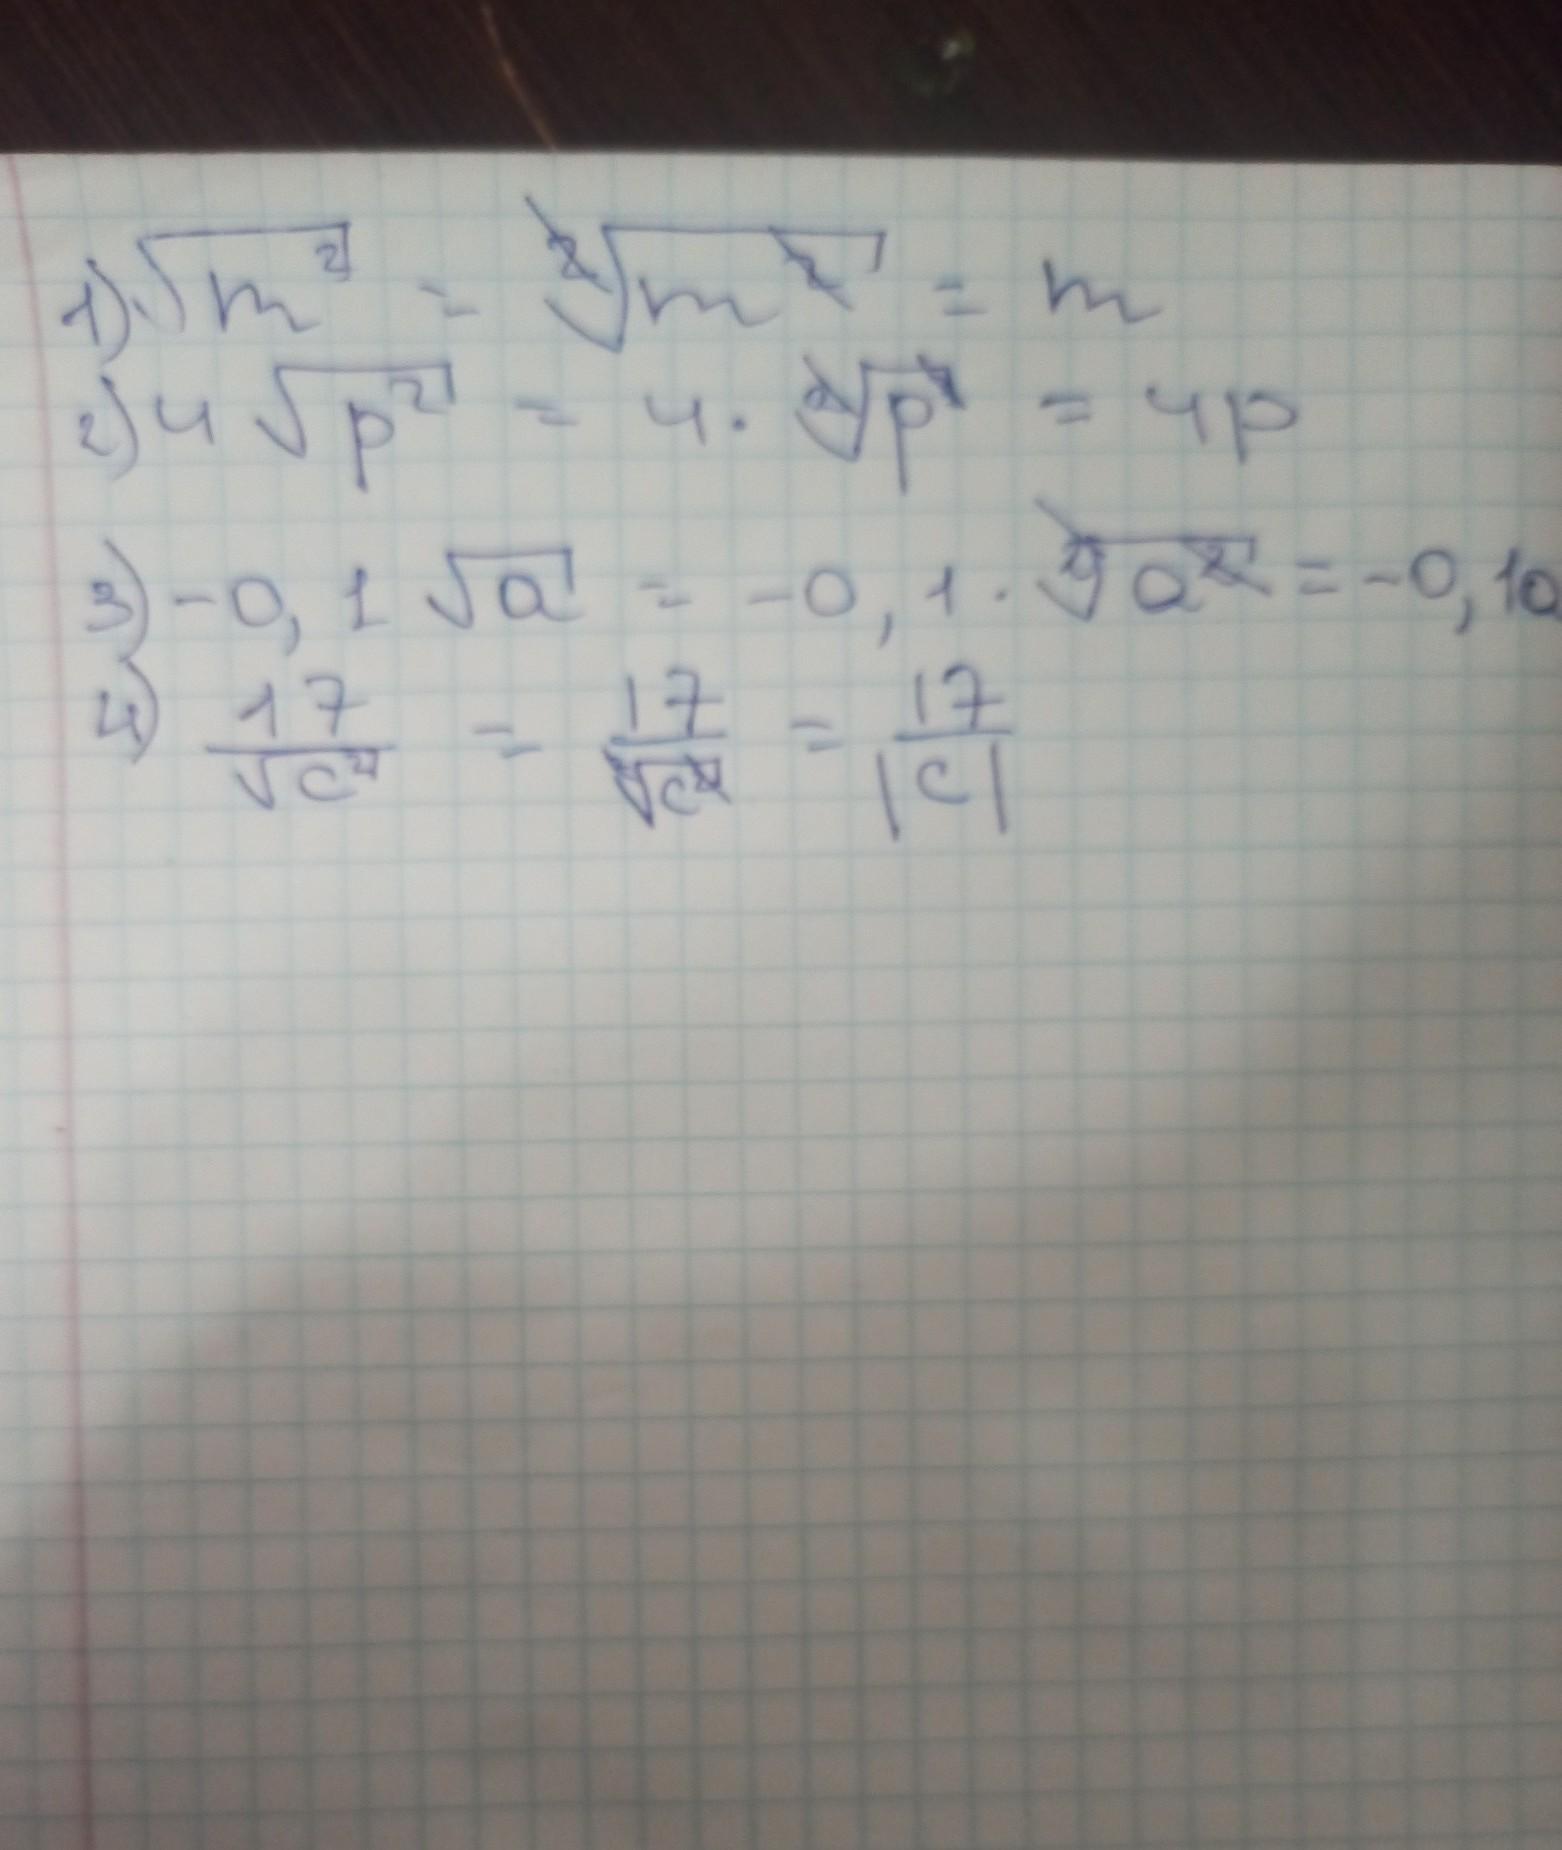 1) √m² = ²√m² = m
2) 4 √p² = 4 · ²√p² = 4p
3) -0,1 √a = -0,1 · ²√a² = -0,1a
4) 17/√c² = 17/²√c² = 17/|c|